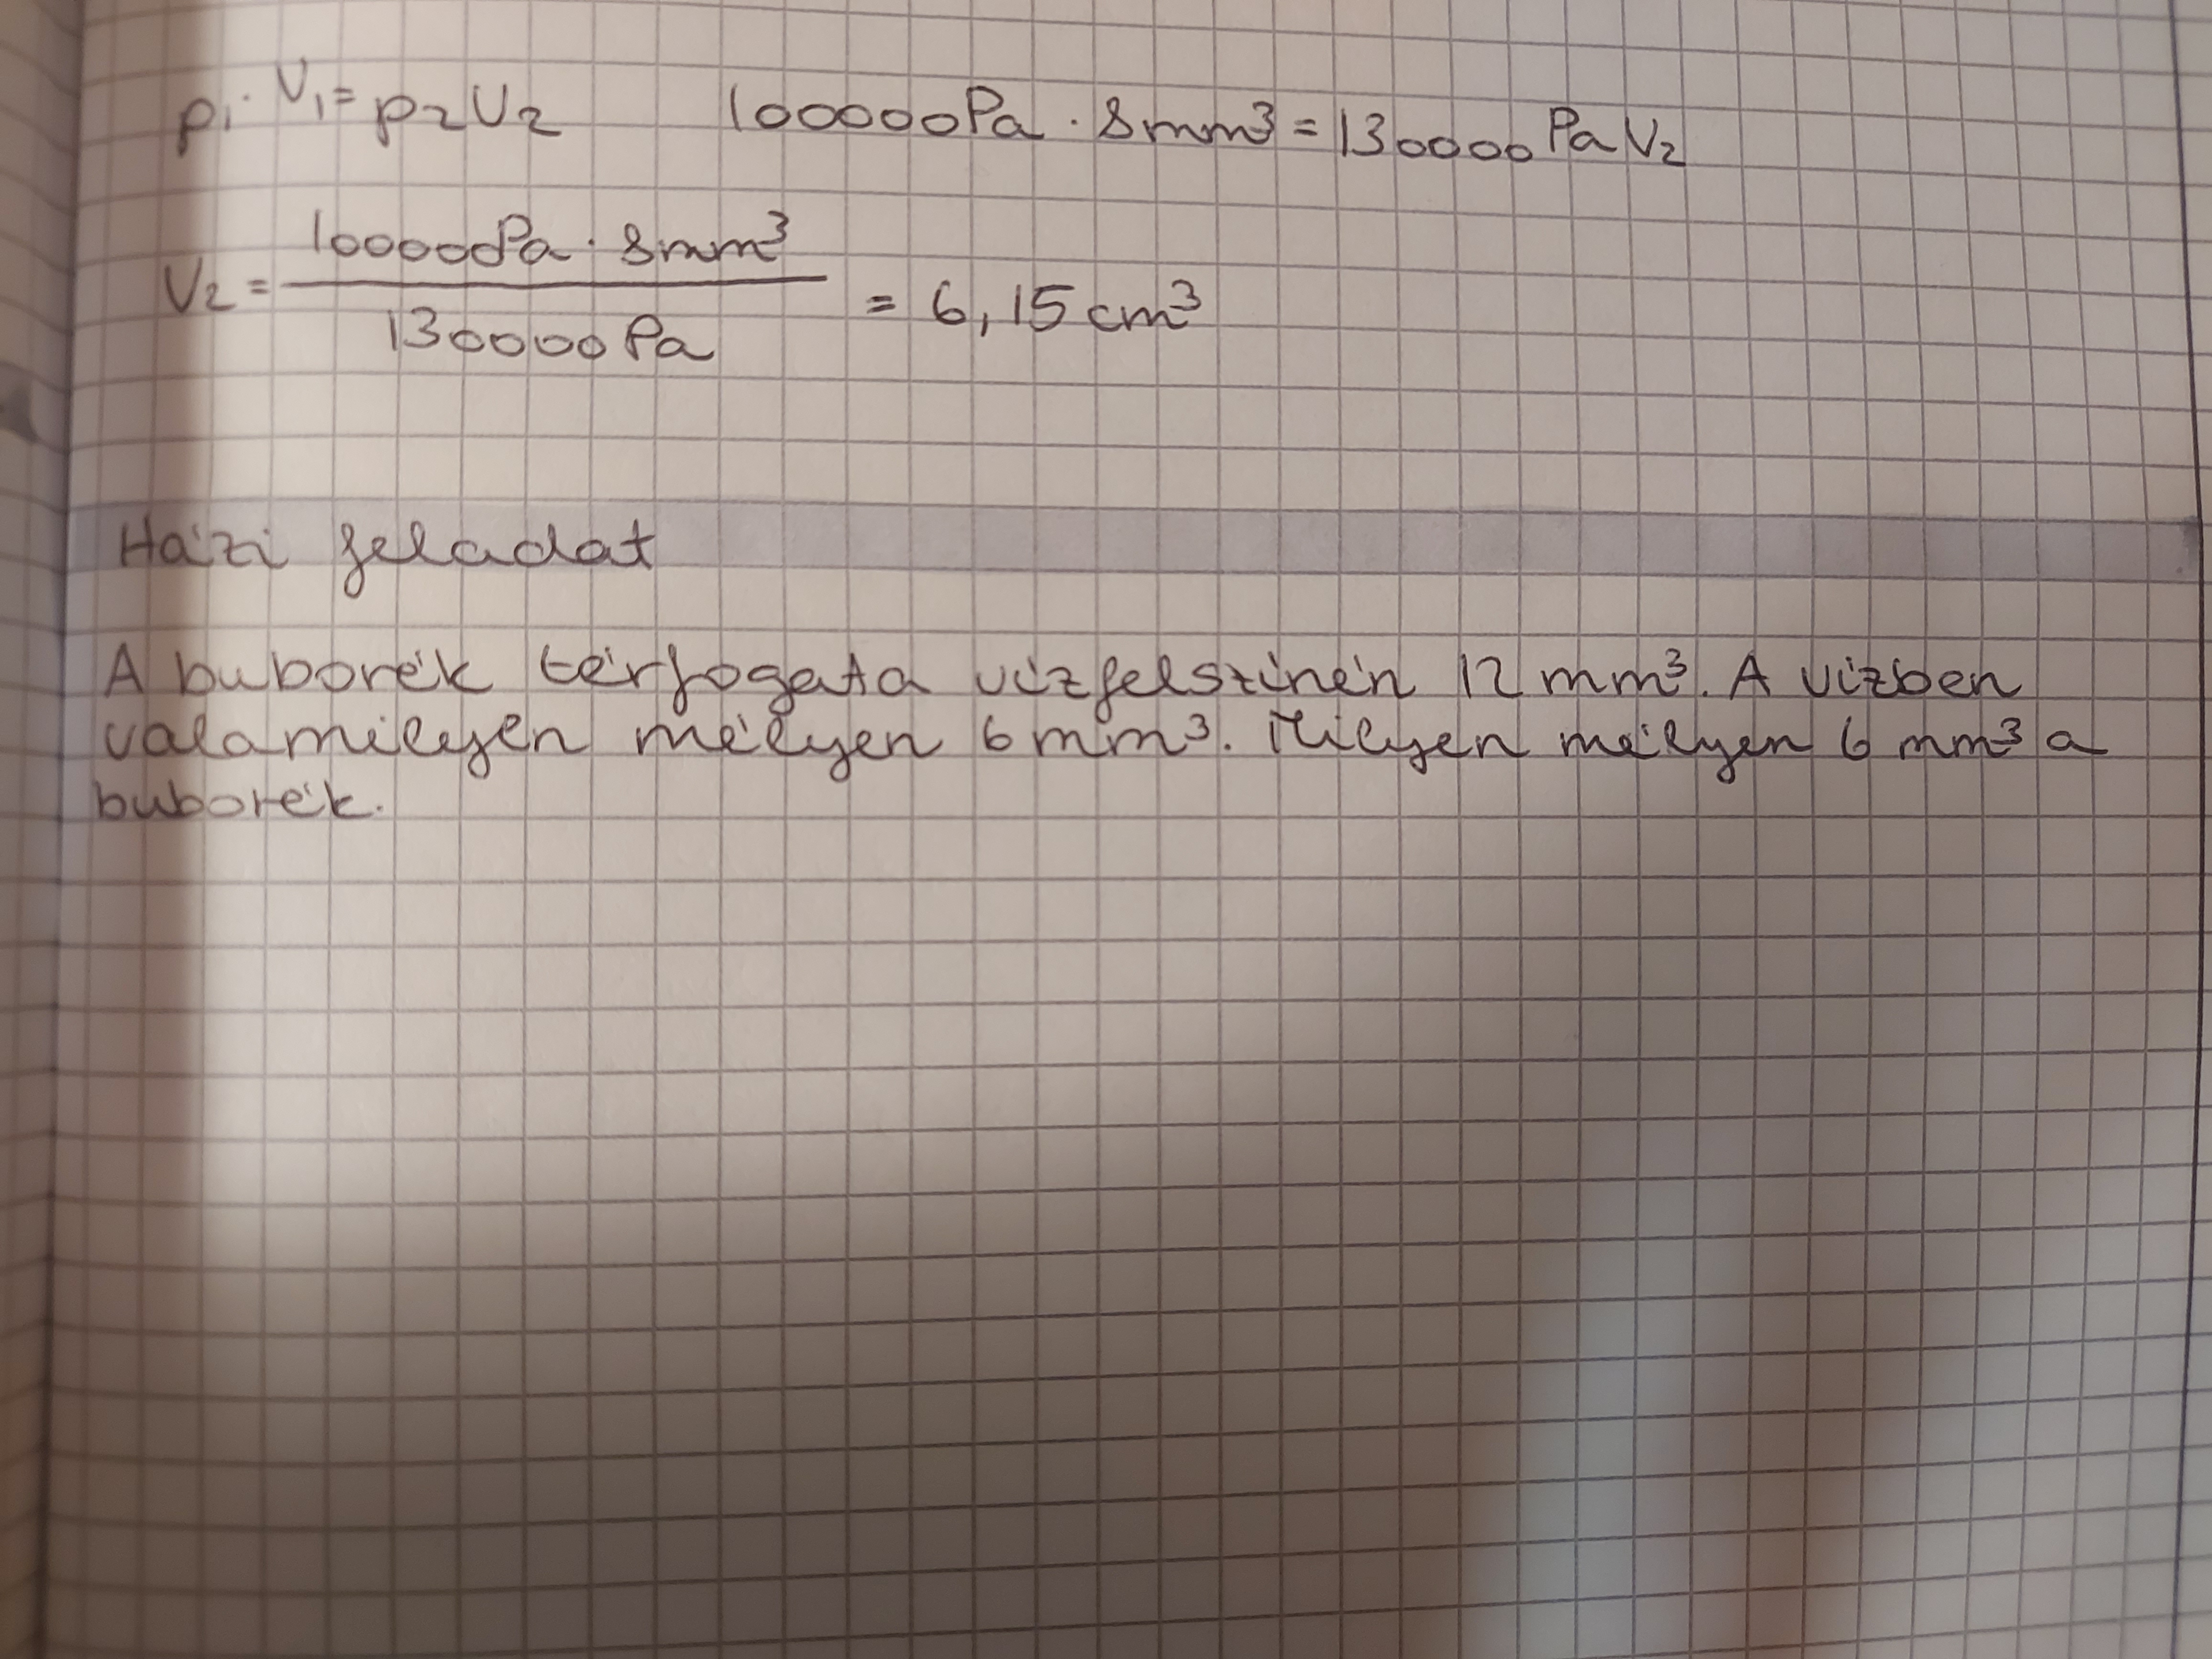 p₁ · V₁ = p₂V₂ 100000Pa · 8mm³ = 130000 Pa V₂
V₂ = 100000Pa · 8mm³ / 130000 Pa = 6,15 cm³
Házi feladat
A buborék térfogata vízfelszínén 12 mm³. A vízben
valamilyen mélyen 6 mm³. Milyen mélyen 6 mm³ a
buborék.